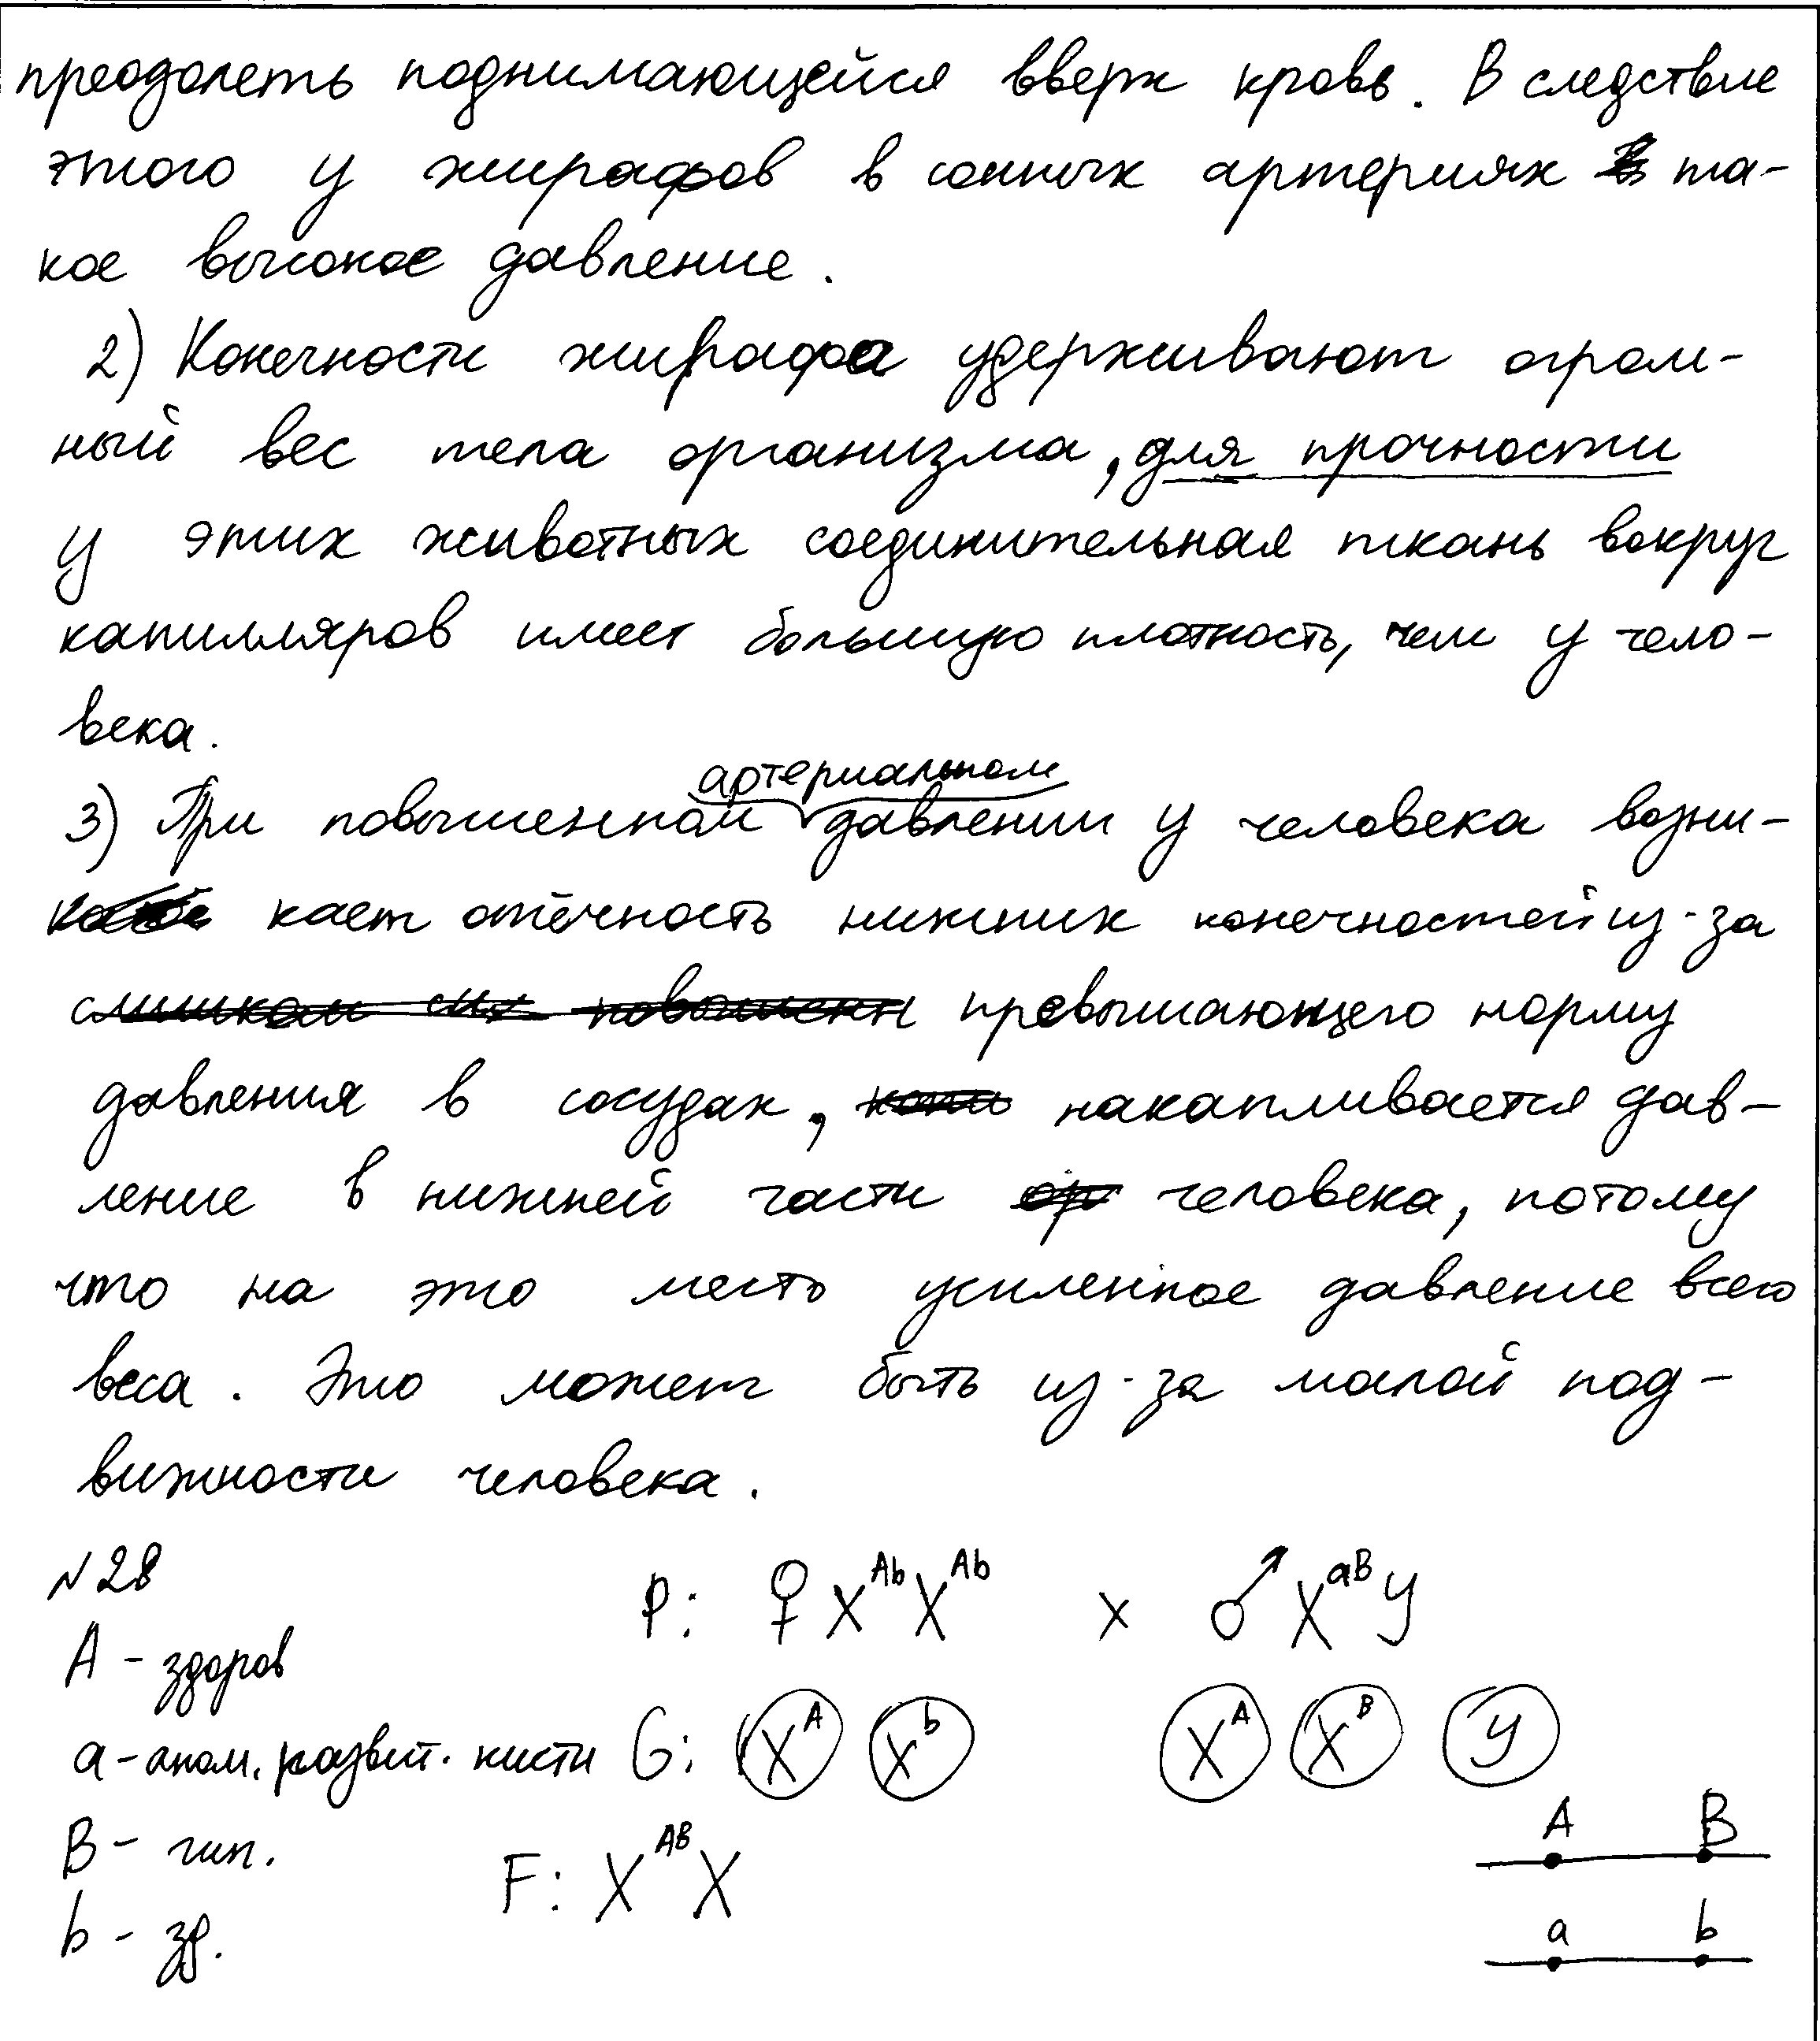 преодолеть поднимающейся вверх кровь. В следствие
этого у жирафов в сонных артериях та-
кое высокое давление.
2) Конечности жирафа удерживают огром-
ный вес тела организма, для прочности
у этих животных соединительная ткань вокруг
капилляров имеет большую плотность, чем у чело-
века.
3) При повышенном артериальном давлении у человека возни-
кает отёчность нижних конечностей из-за
слишком превышающего норму
давления в сосудах, накапливается дав-
ление в нижней части человека, потому
что на это место усиленное давление всего
веса. Это может быть из-за малой под-
вижности человека.
№28
P: ♀ X^Ab X^Ab x ♂ X^aB Y
A - здоров
a - аном. развит. кисти G: X^A X^b X^A X^B Y
A B
B - гип.
F: X^AB X
b - зд.
a b